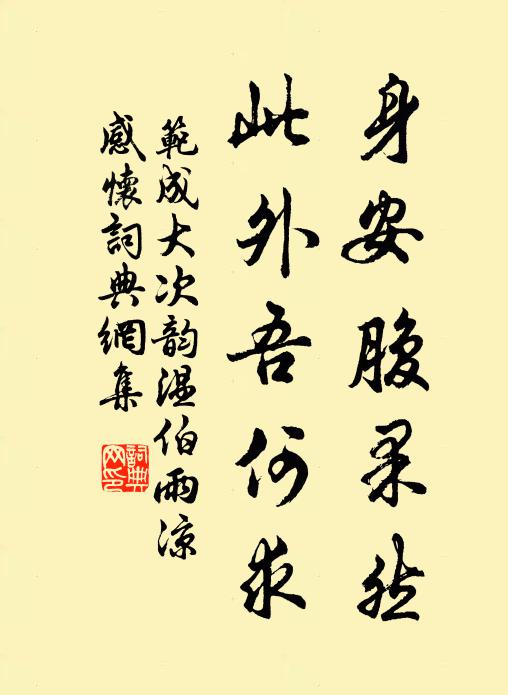 身安腹果然
此外吾何求
範成大次韵温伯雨凉
感懷詞典網集
詞典
网印